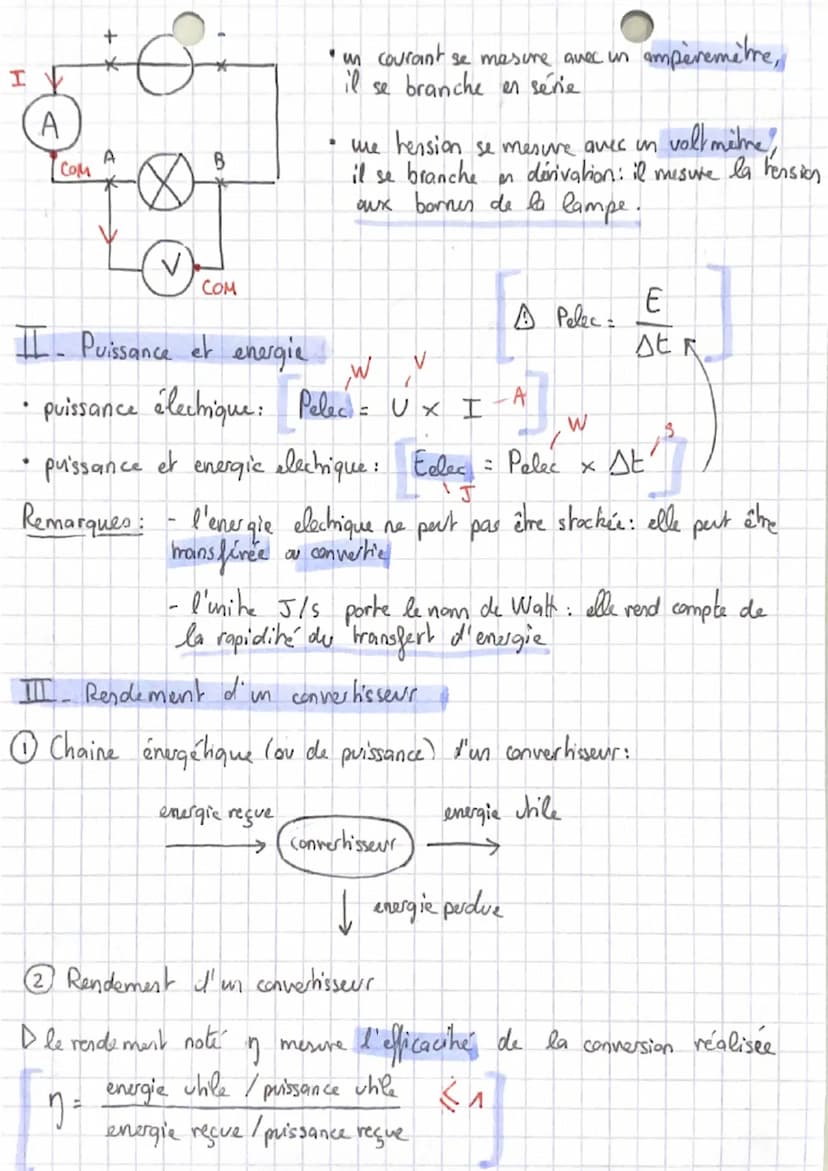 + -
I
A
COM A B
V
COM
• un courant se mesure avec un ampèremètre,
il se branche en série
• une tension se mesure avec un voltmètre,
il se branche en dérivation: il mesure la tension
aux bornes de la lampe.
⚠ Pelec = E / Δt
II - Puissance et energie
W V
• puissance électrique: [Pelec = U × I - A]
W s
• puissance et energie electrique: [Eelec = Pelec × Δt]
J
Remarques: - l'energie electrique ne peut pas être stockée: elle peut être
transférée ou convertie
- l'unité J/s porte le nom de Watt: elle rend compte de
la rapidité du transfert d'energie
III - Rendement d'un convertisseur
① Chaine énergétique (ou de puissance) d'un convertisseur:
energie reçue energie utile
convertisseur
energie perdue
② Rendement d'un convertisseur
▷ le rendement noté η mesure l'efficacité de la conversion réalisée
η = energie utile / puissance utile ⩽ 1
energie reçue / puissance reçue